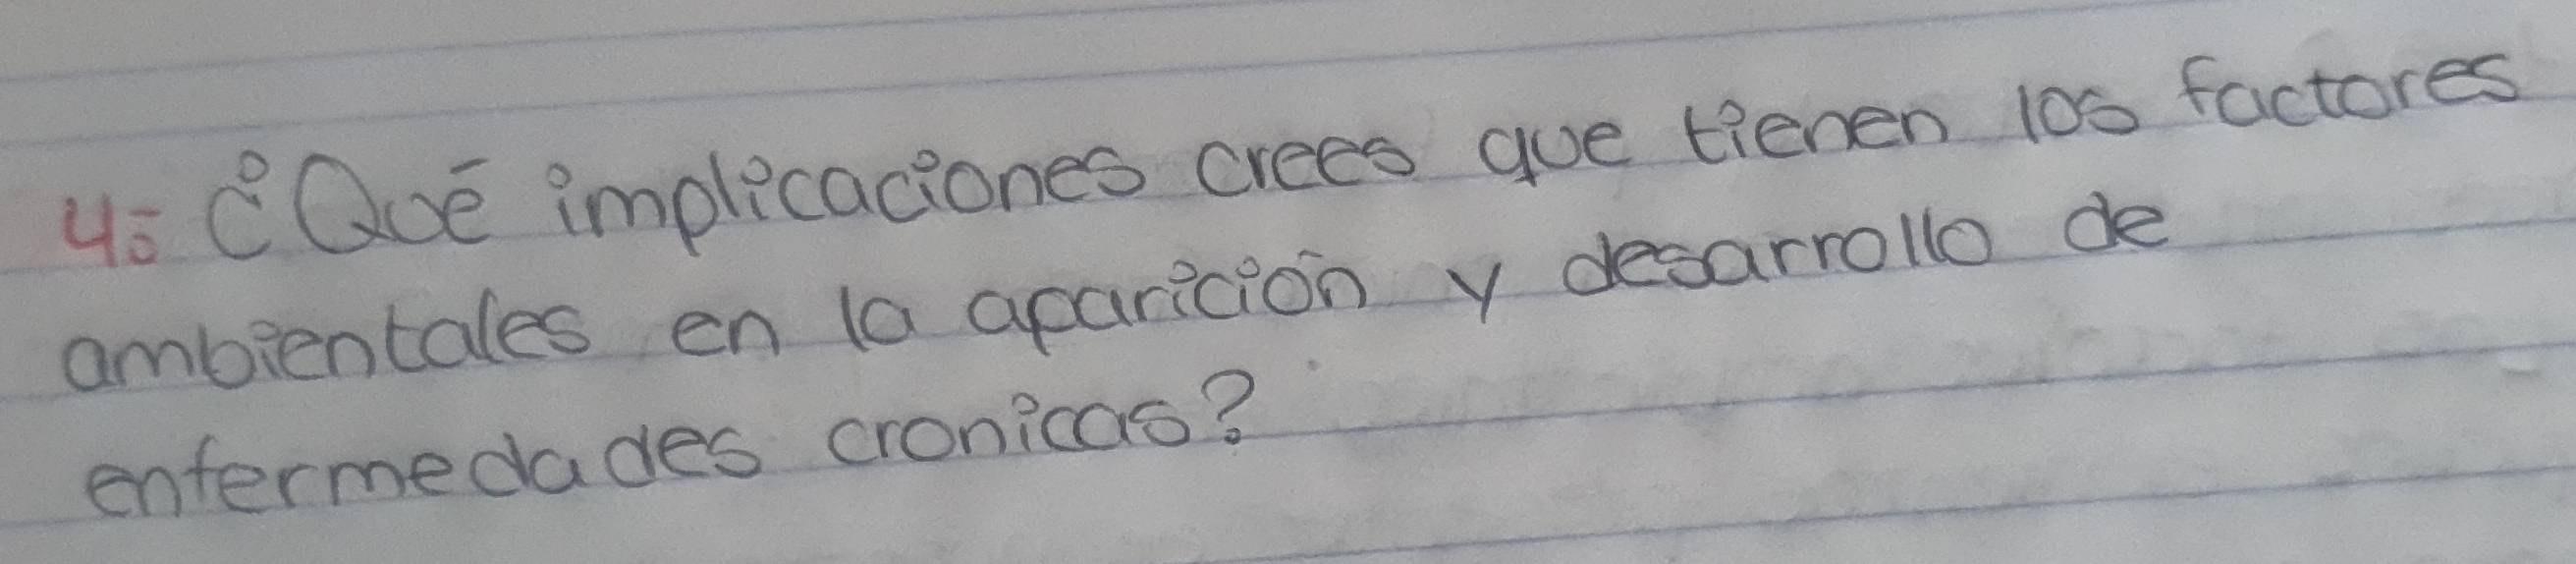 4- ¿Qué implicaciones crees que tienen los factores
ambientales en la aparición y desarrollo de
enfermedades cronicas?